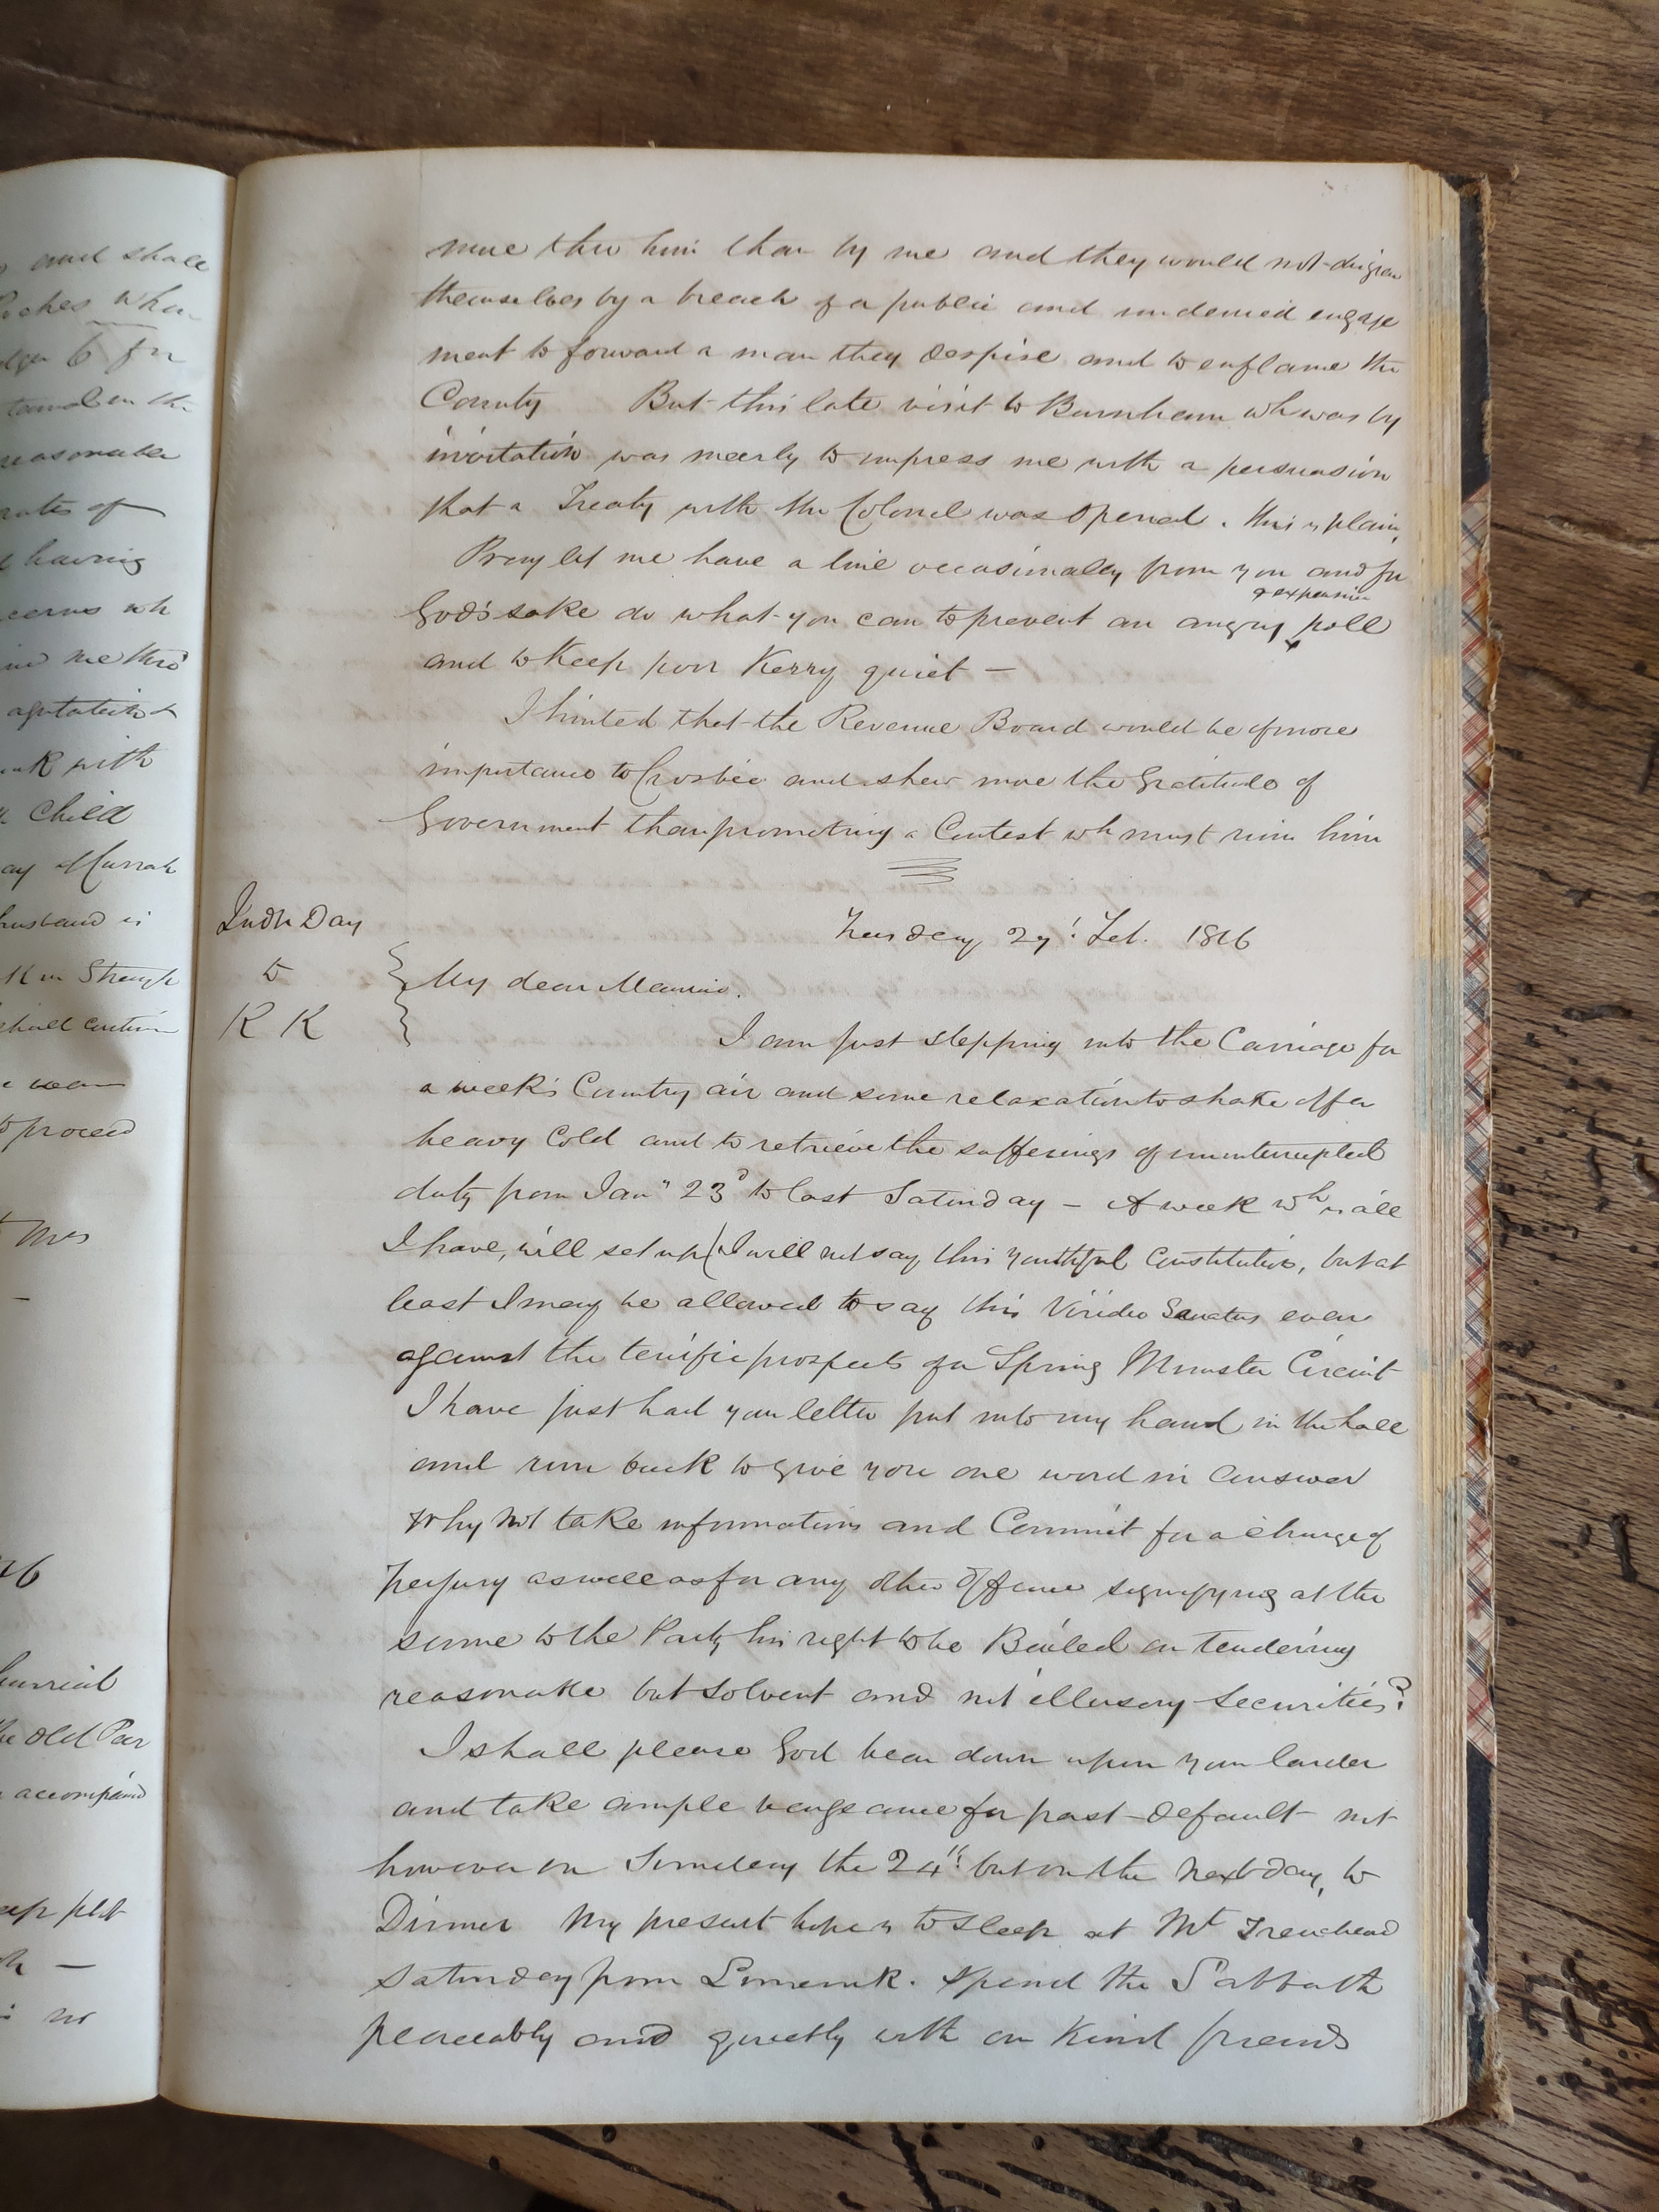 more thro him than by me and they would not disgrace
themselves by a breach of a public and undenied engage
ment to forward a man they despise and to enflame the
County But this late visit to Burnham wh was by
invitation was meerly to impress me with a persuasion
that a Treaty with the Colonel was opened. this is plain.
Pray let me have a line occasionally from you and for
& expensive
God's sake do what you can to prevent an angry poll
and to Keep poor Kerry quiet —
I hinted that the Revenue Board would be of more
importance to Crosbie and shew more the Gratitude of
Government than promoting a Contest wh must ruin him
Tuesday 27: Feb. 1816
Judge Day
to
K K
My dear Maurice.
I am just stepping into the Carriage for
a week's Country air and some relaxation to shake off a
heavy Cold and to retrieve the sufferings of uninterrupted
duty from Jany 23d to last Saturday — A week wh is all
I have, will set up (I will not say this youthful Constitution, but at
least I may be allowed to say this Viridis Senectus even
against the terrific prospects of a Spring Munster Circuit
I have just had your letter put into my hand in the hall
and run back to give you one word in answer
Why not take informations and Commit for a charge of
Perjury as well as for any other Offence signifying at the
same to the Party his right to be Bailed on tendering
reasonable but solvent and not illusory securities?
I shall please God bear down upon your larder
and take ample vengeance for past default not
however on Sunday the 24th: but on the next day, to
Dinner My present hope is to sleep at Mt Trenchard
Saturday from Limerick. Spend the Sabbath
peaceably and quietly with our Kind friends
and shall
when
6 for
reasonable
of
having
wh
me thro'
agitation
with
Child
Hannah
husband is
to proceed
Mrs
the old Peer
accompanied
no